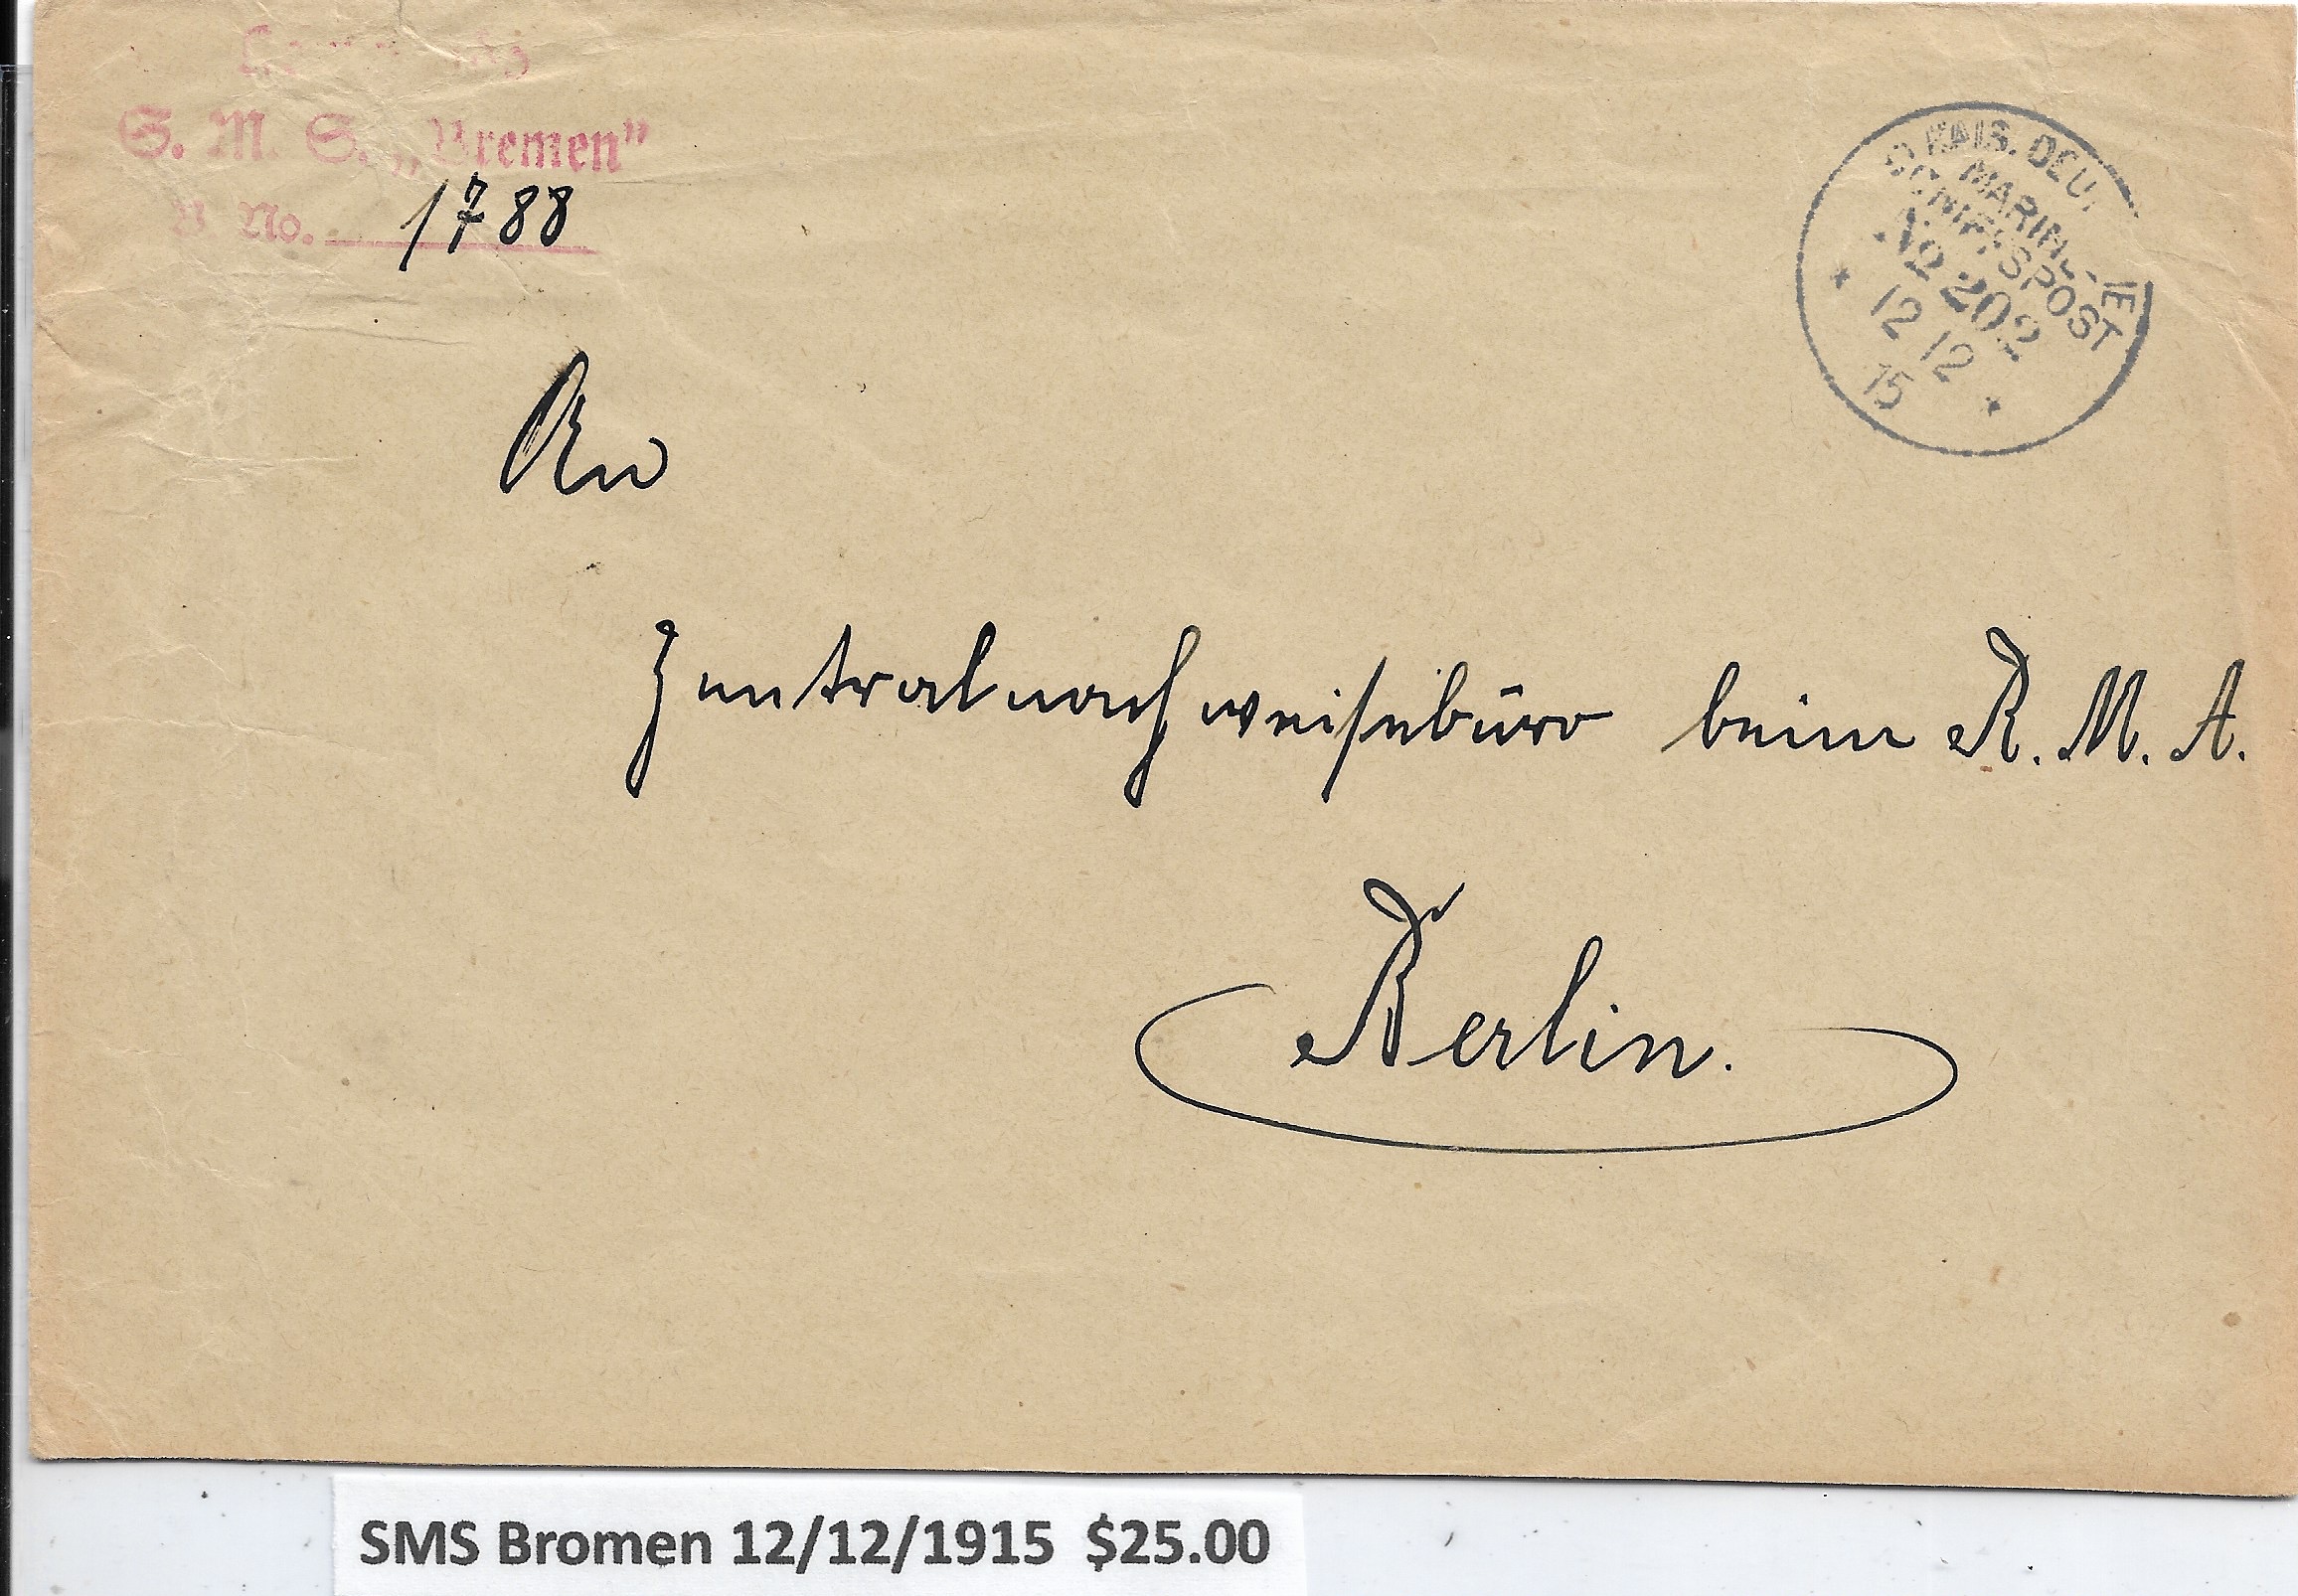 S. M. S. „Bremen”
No. 1788
KAIS. DEU
MARINE
SCHIFFSPOST
No 202
* 12 12 *
15
An
Zentralnachweisebüro beim R. M. A.
Berlin.
SMS Bromen 12/12/1915 $25.00